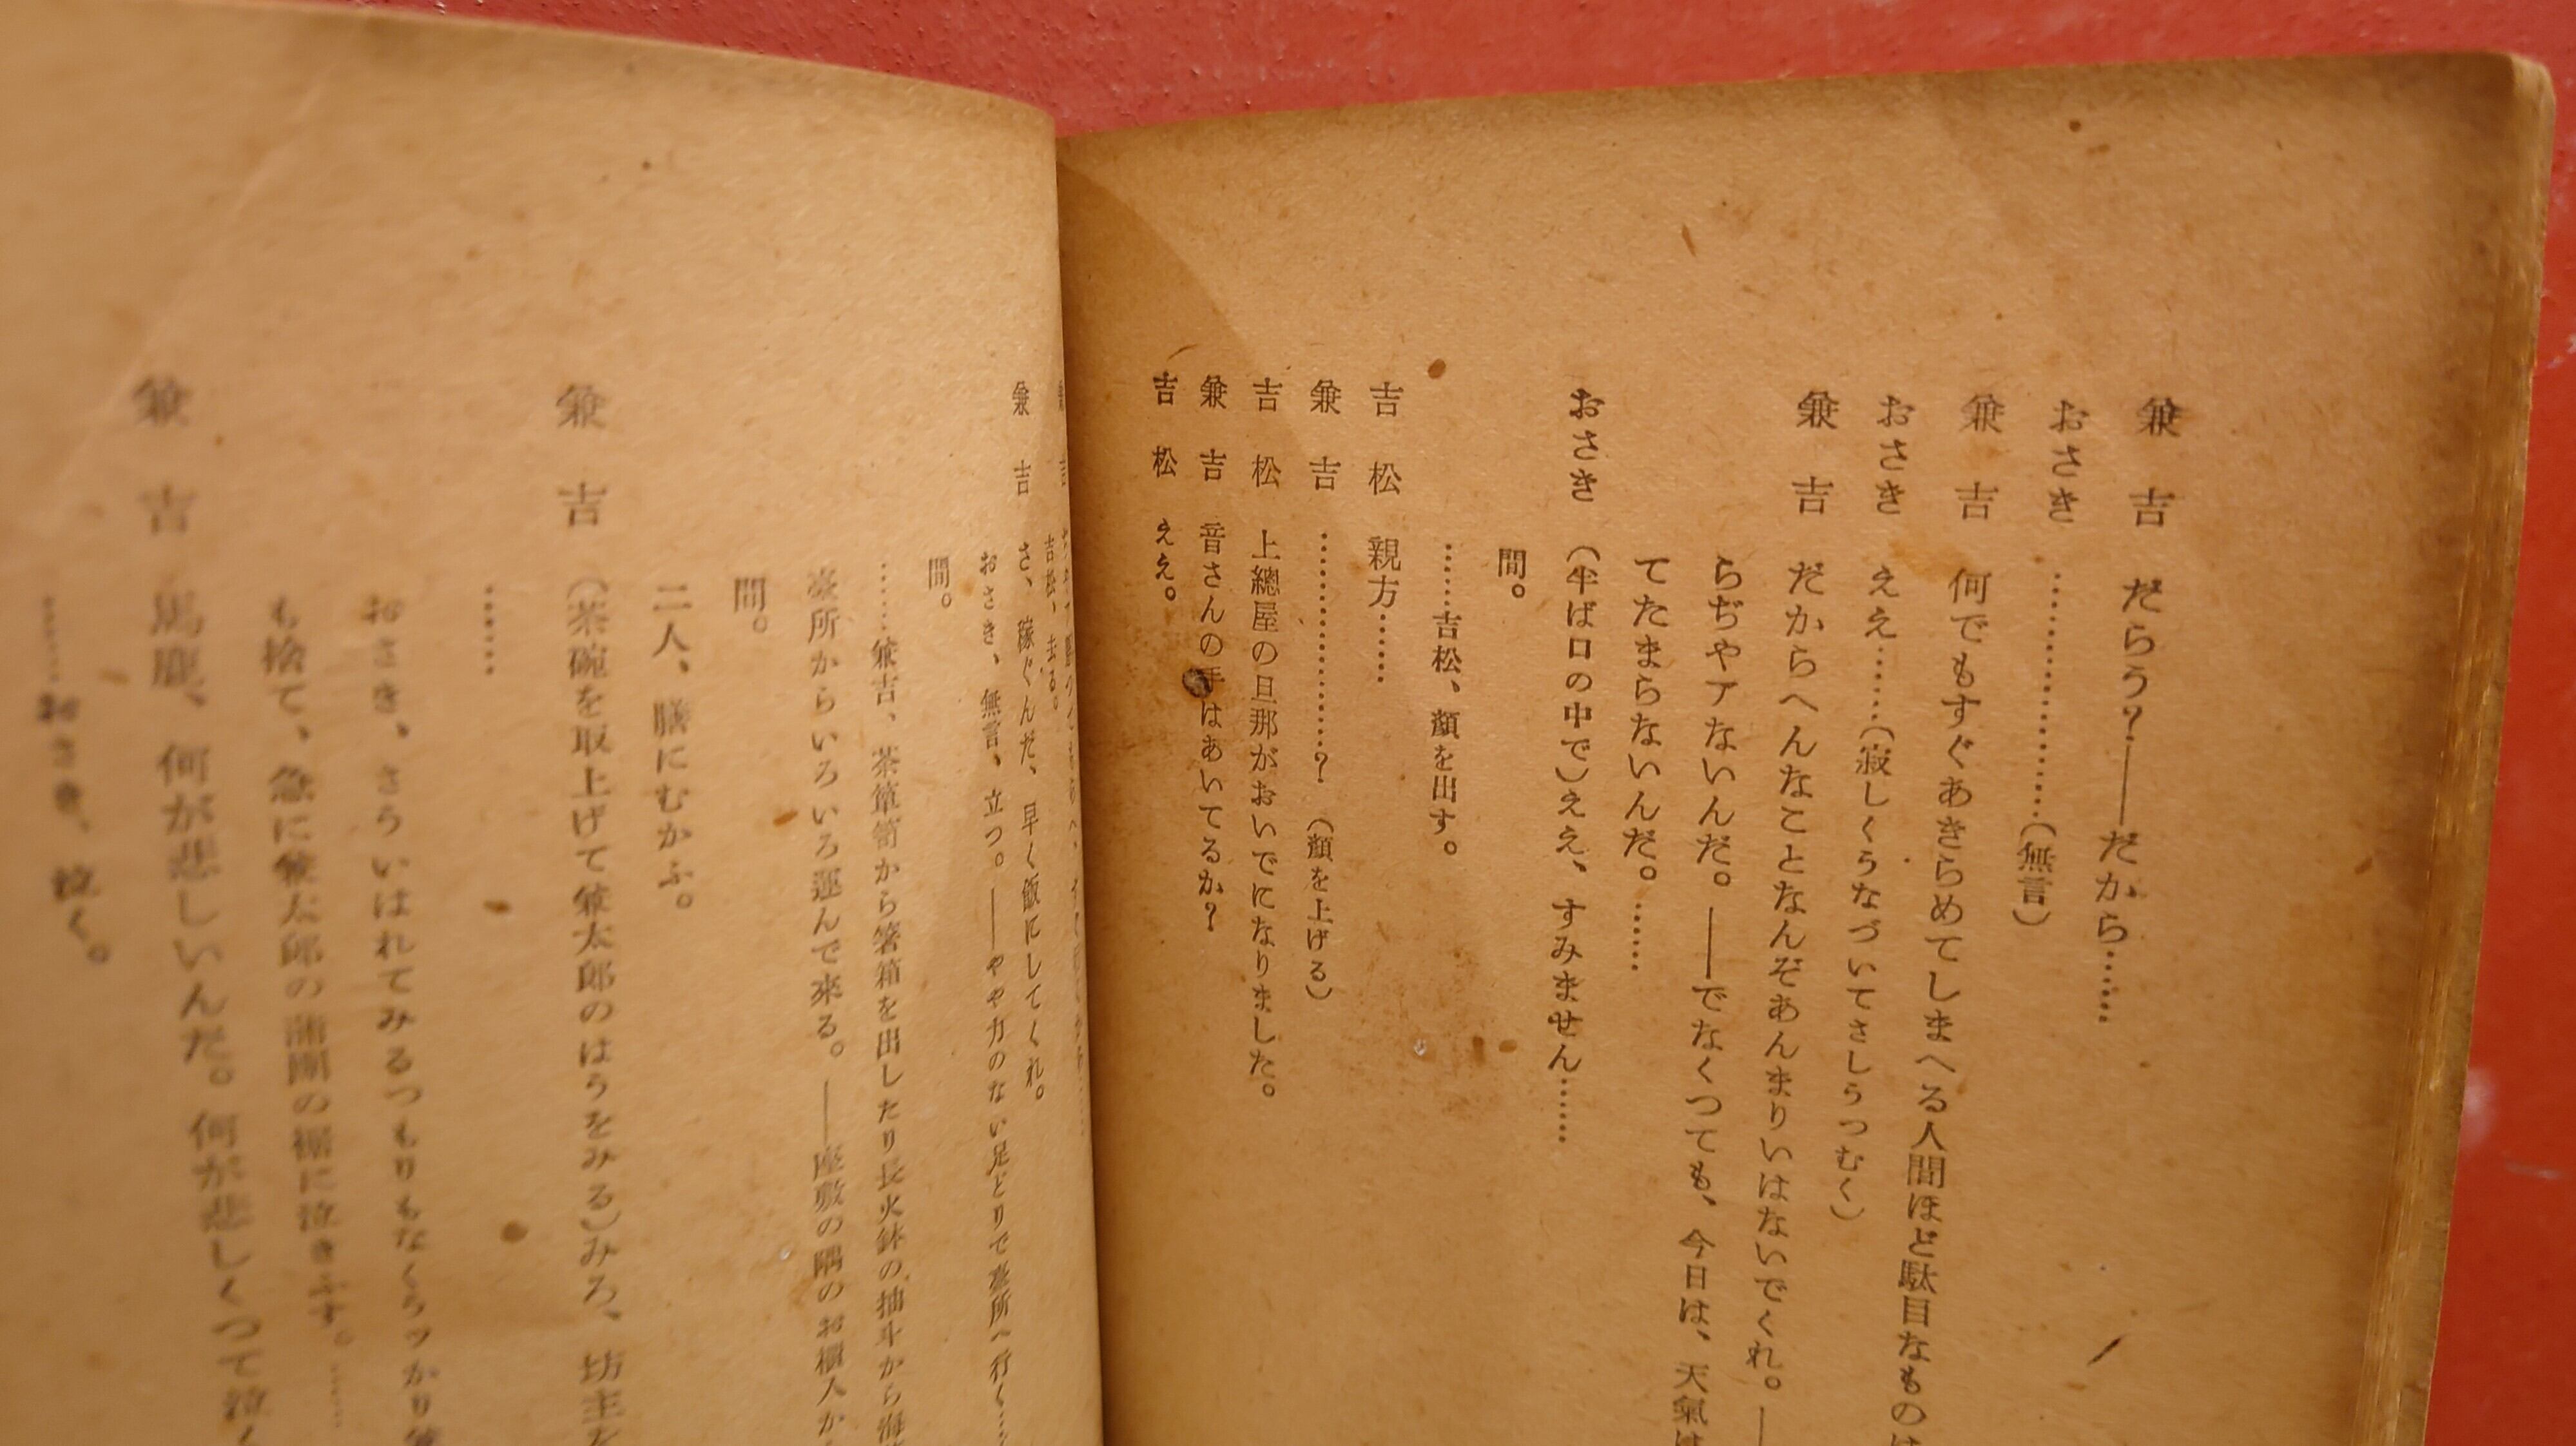 兼吉　だらう？――だから……
おさき　………………（無言）
兼吉　何でもすぐあきらめてしまへる人間ほど駄目なものは
おさき　ええ……（寂しくうなづいてさしうつむく）
兼吉　だからへんなことなんぞあんまりいはないでくれ。――
らぢやアないんだ。――でなくつても、今日は、天氣は
てたまらないんだ。……
おさき　（半ば口の中で）ええ、すみません……
間。
……吉松、顏を出す。
吉松　親方……
兼吉　………………？（顏を上げる）
吉松　上總屋の旦那がおいでになりました。
兼吉　音さんの手はあいてるか？
吉松　ええ。
兼吉
吉松、去る。
兼吉　さ、稼ぐんだ、早く飯にしてくれ。
おさき、無言、立つ。――やや力のない足どりで臺所へ行く……
間。
……兼吉、茶簞笥から箸箱を出したり長火鉢の抽斗から海
臺所からいろいろ運んで來る。――座敷の隅のお櫃入か
間。
二人、膳にむかふ。
兼吉　（茶碗を取上げて兼太郎のはうをみる）みろ、坊主を
……
おさき、さういはれてみるつもりもなくうッかり兼
も捨て、急に兼太郎の蒲團の裾に泣きふす。……
兼吉　馬鹿、何が悲しいんだ。何が悲しくつて泣く
……おさき、泣く。